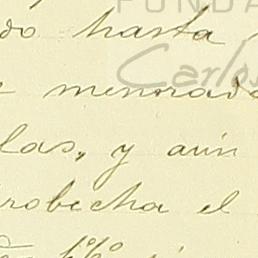 FUNDA
do hasta
Carlos
menorada
las, y aún
robecha el